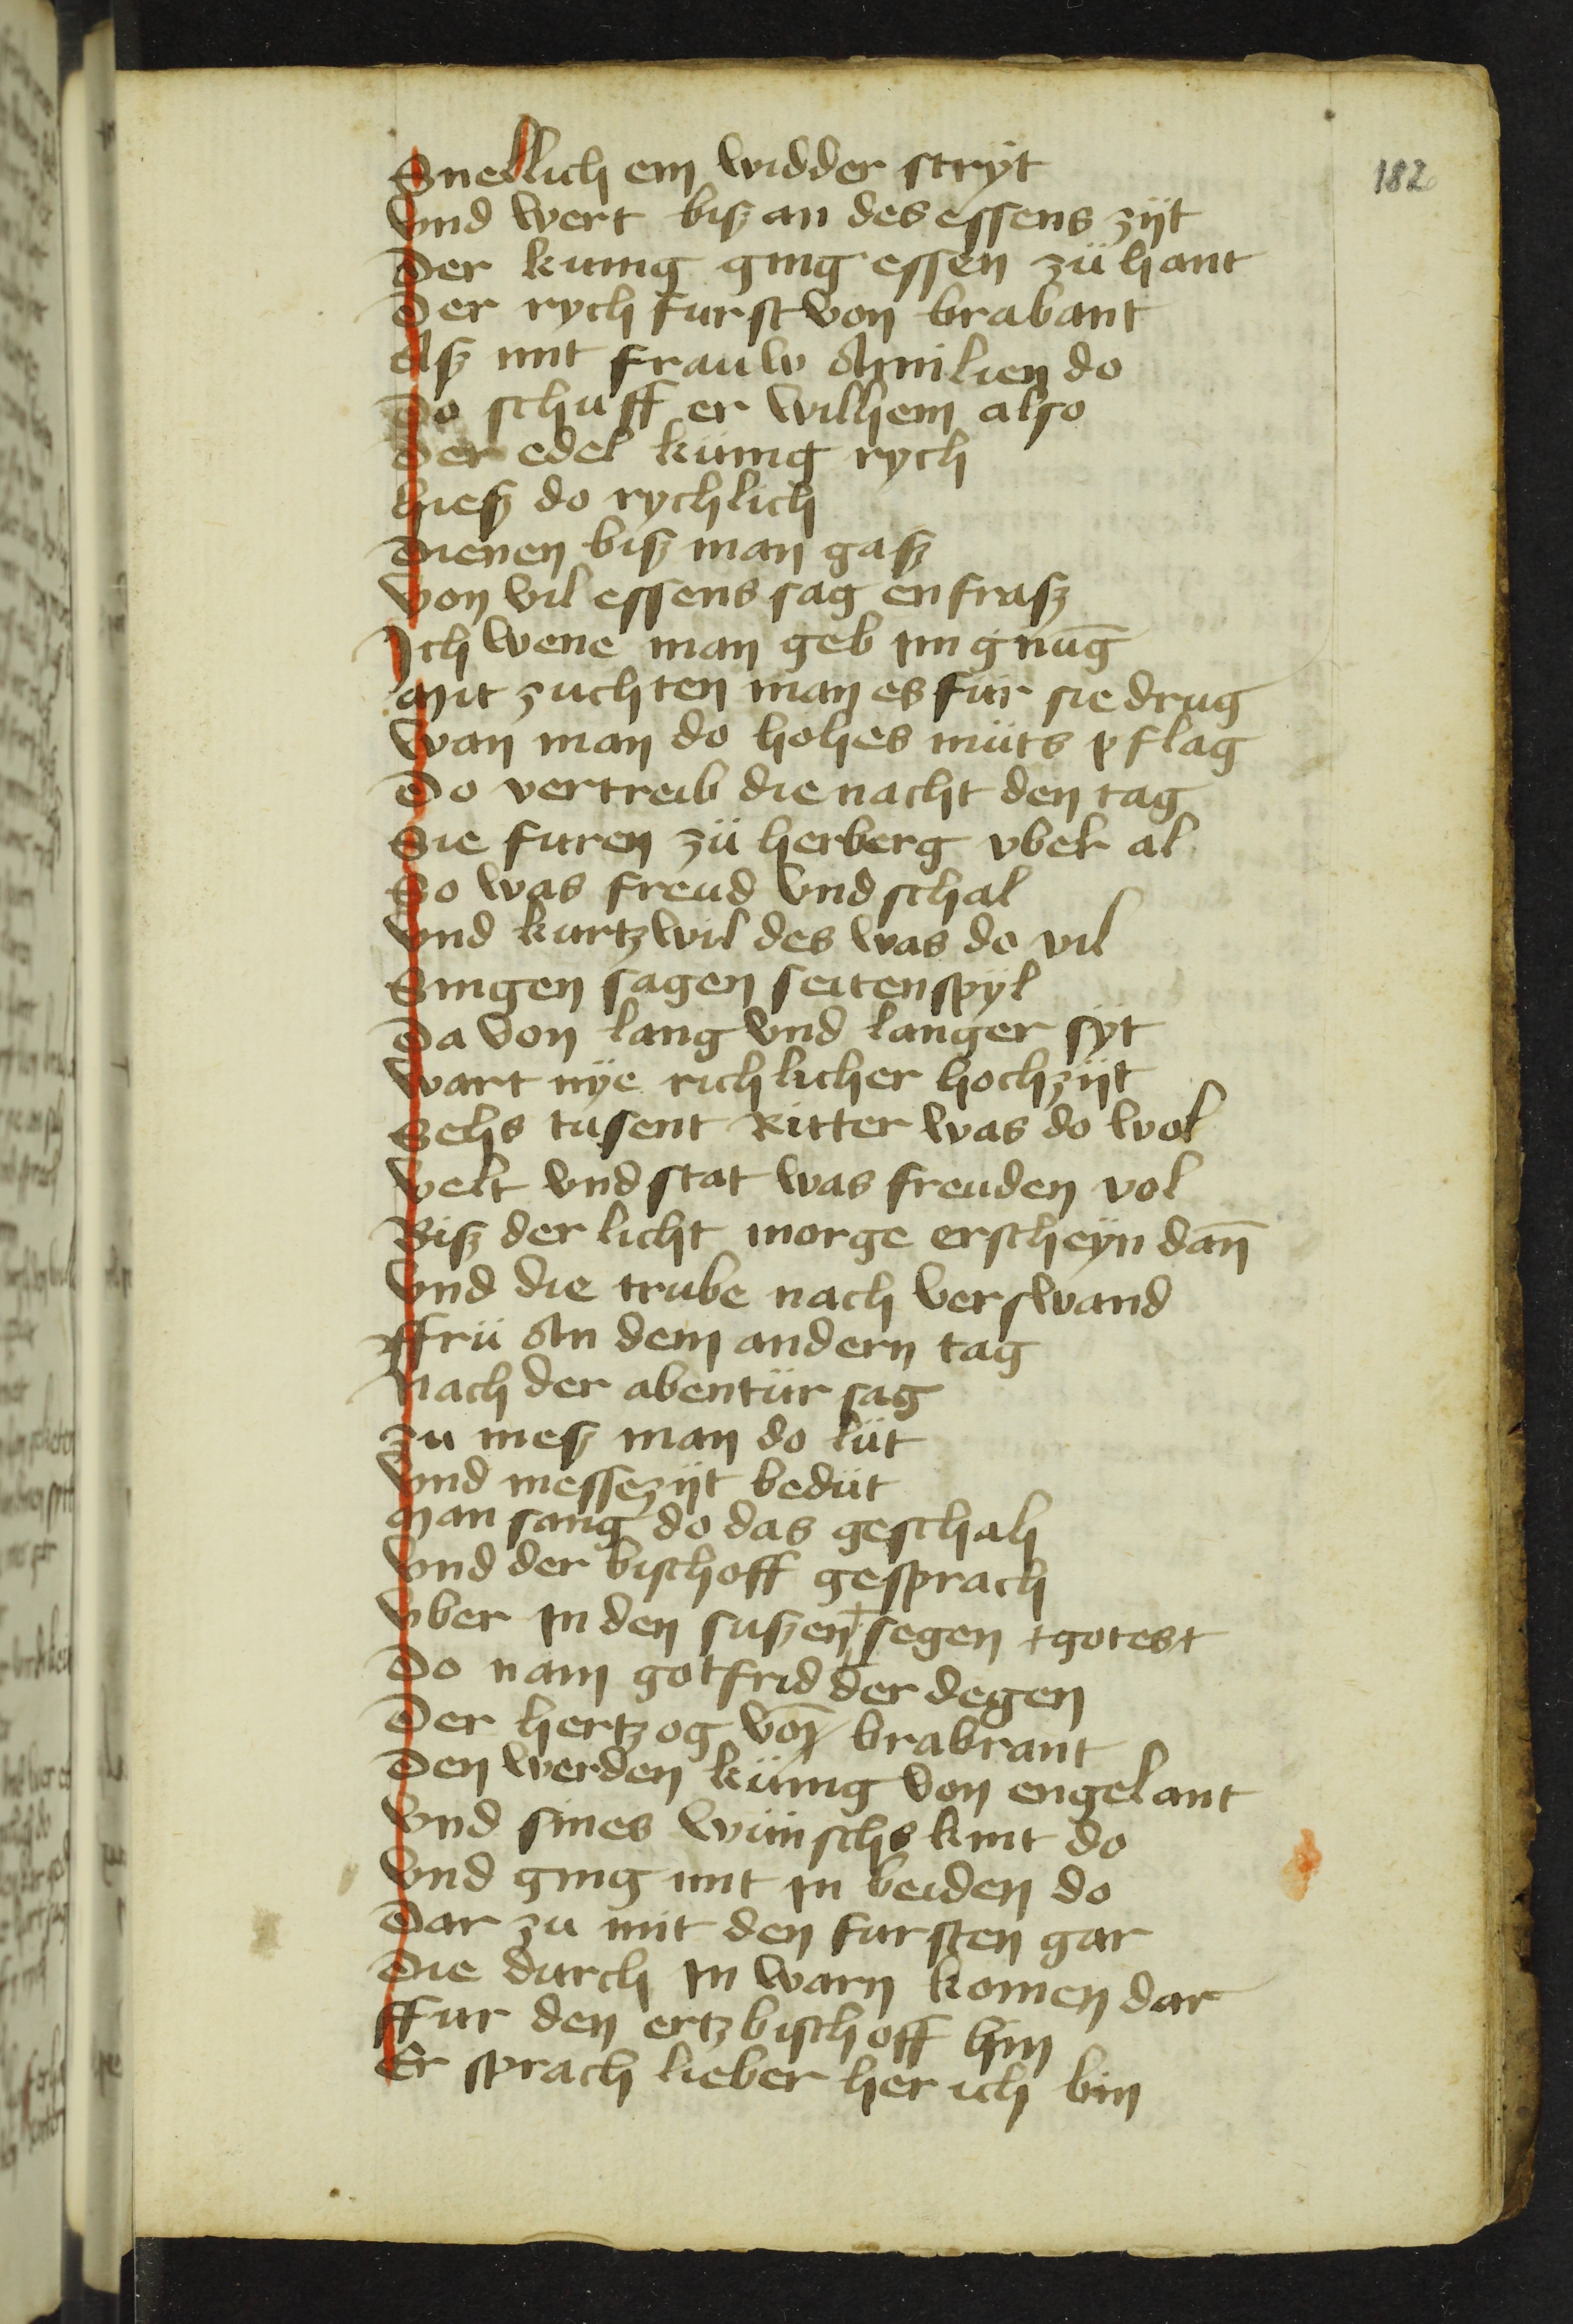 182
Snellich ein widder stryt
Vnd wert bisz an des essens zijt
Der kunig ging essen zü hant
Der rych furst von brabant
Asz mit frauw Amilien do
Do schuff er wilhem also
Der edel künig rych
Hiesz do rychlich
Dienen bisz man gasz
Von vil essens sag en frasz
Ich wene man geb im gnug̅
Mit zuchten man es für sie drug
Wan man do hohes müts pflag
Do vertreib die nacht den tag
Sie furen zü herberg vber al
So was freud vnd schal
Vnd kurtzwil des was do vil
Singen sagen seitenspÿl
Da von lang vnd langer sÿt
Wart nÿe richlicher hochzijt
Sehs tusent Ritter was do wol
Velt vnd stat was freuden vol
Bisz der licht morge erscheÿn dan̅
Vnd die trube nach verswand
ffrü An dem andern tag
Nach der abentür sag
Zu mesz man do lüt
Vnd messezijt bedüt
Man sang do das geschah
Vnd der bischoff gesprach
Vber In den suszen + segen + gotes +
Do nam gotfrid der degen
Der hertzog von̅ brabrant
Den werden künig von engelant
Vnd sines wünschs kint do
Vnd ging mit in beiden do
Dar zu mit den fursten gar
Die durch in warn komen dar
ffur den ertzbischoff hin
Er sprach lieber her ich bin